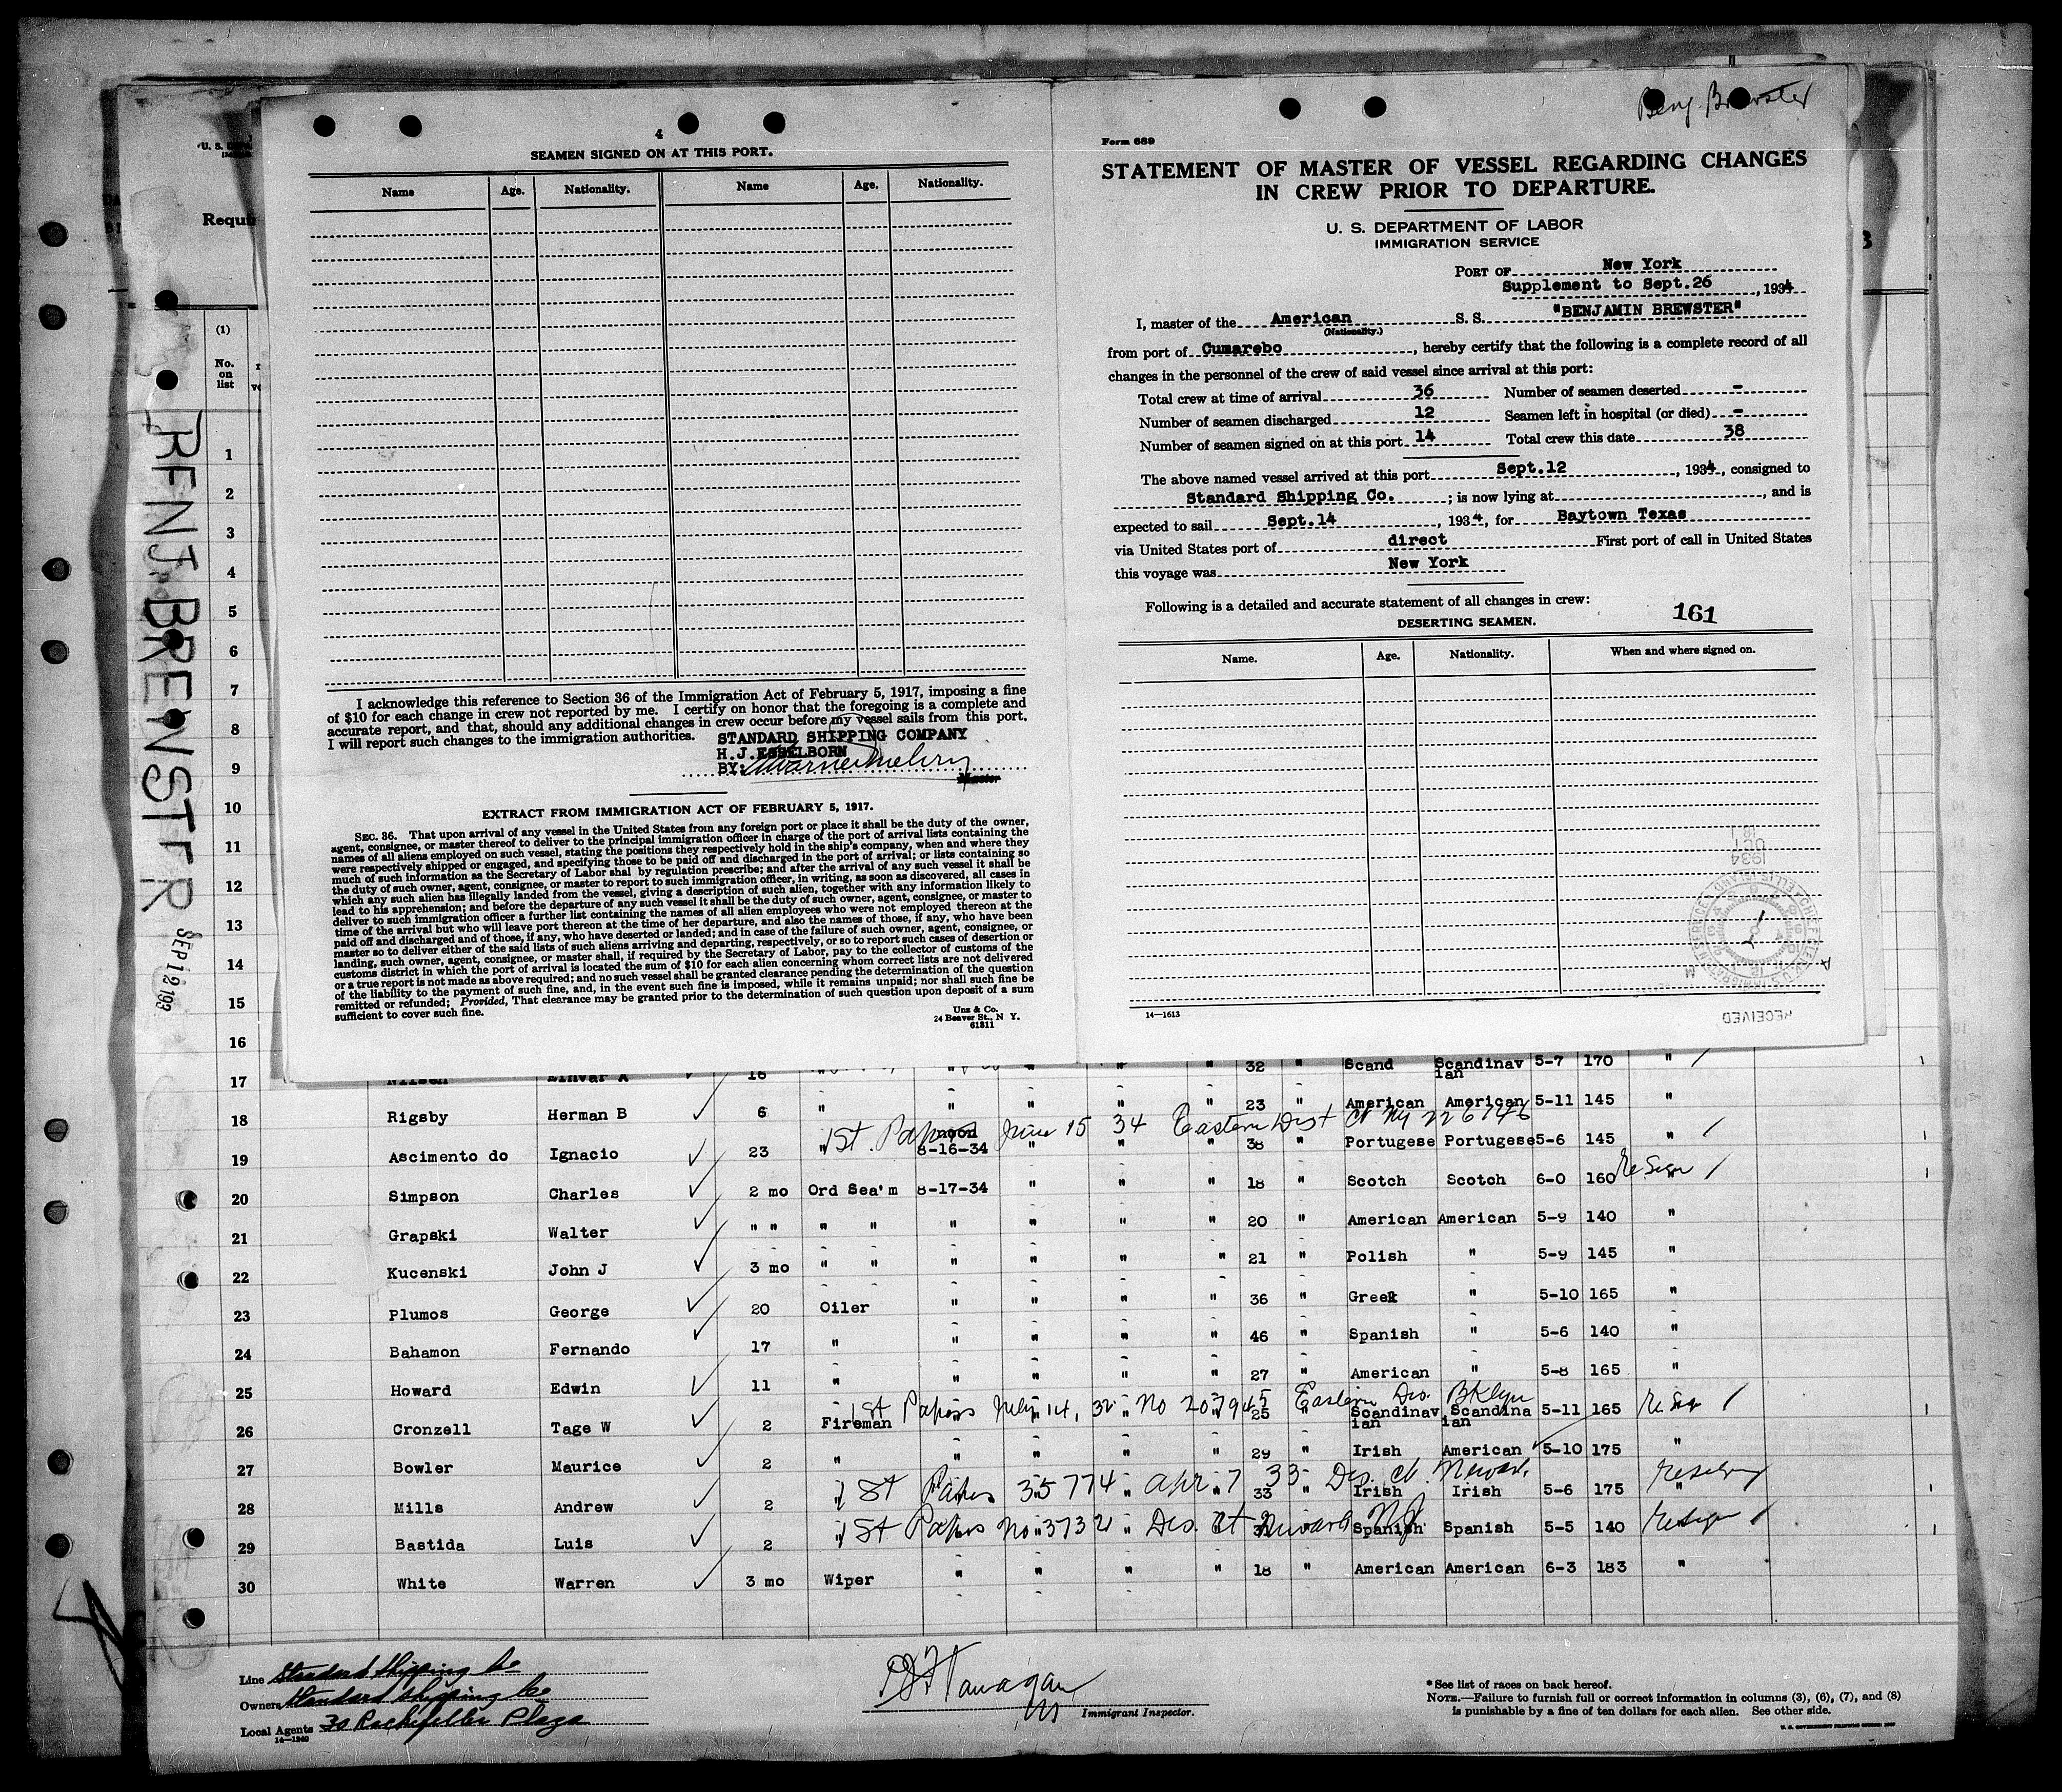 4
SEAMEN SIGNED ON AT THIS PORT.
Name Age. Nationality. Name Age. Nationality.
I acknowledge this reference to Section 36 of the Immigration Act of February 5, 1917, imposing a fine
of $10 for each change in crew not reported by me. I certify on honor that the foregoing is a complete and
accurate report, and that, should any additional changes in crew occur before my vessel sails from this port,
I will report such changes to the immigration authorities.
STANDARD SHIPPING COMPANY
H.J.ESSELBORN
BY:
Master
EXTRACT FROM IMMIGRATION ACT OF FEBRUARY 5, 1917.
SEC. 36. That upon arrival of any vessel in the United States from any foreign port or place it shall be the duty of the owner,
agent, consignee, or master thereof to deliver to the principal immigration officer in charge of the port of arrival lists containing the
names of all aliens employed on such vessel, stating the positions they respectively hold in the ship's company, when and where they
were respectively shipped or engaged, and specifying those to be paid off and discharged in the port of arrival; or lists containing so
much of such information as the Secretary of Labor shal by regulation prescribe; and after the arrival of any such vessel it shall be
the duty of such owner, agent, consignee, or master to report to such immigration officer, in writing, as soon as discovered, all cases in
which any such alien has illegally landed from the vessel, giving a description of such alien, together with any information likely to
lead to his apprehension; and before the departure of any such vessel it shall be the duty of such owner, agent, consignee, or master to
deliver to such immigration officer a further list containing the names of all alien employees who were not employed thereon at the
time of the arrival but who will leave port thereon at the time of her departure, and also the names of those, if any, who have been
paid off and discharged and of those, if any, who have deserted or landed; and in case of the failure of such owner, agent, consignee, or
master so to deliver either of the said lists of such aliens arriving and departing, respectively, or so to report such cases of desertion or
landing, such owner, agent, consignee, or master shall, if required by the Secretary of Labor, pay to the collector of customs of the
customs district in which the port of arrival is located the sum of $10 for each alien concerning whom correct lists are not delivered
or a true report is not made as above required; and no such vessel shall be granted clearance pending the determination of the question
of the liability to the payment of such fine, and, in the event such fine is imposed, while it remains unpaid; nor shall such fine be
remitted or refunded; Provided, That clearance may be granted prior to the determination of such question upon deposit of a sum
sufficient to cover such fine.
Unz & Co.
24 Beaver St., N Y.
61311
Benj. Brewster
Form 689
STATEMENT OF MASTER OF VESSEL REGARDING CHANGES
IN CREW PRIOR TO DEPARTURE.
U. S. DEPARTMENT OF LABOR
IMMIGRATION SERVICE
PORT OF New York
Supplement to Sept.26, 1934
I, master of the American S. S. "BENJAMIN BREWSTER"
(Nationality.)
from port of Cumarebo, hereby certify that the following is a complete record of all
changes in the personnel of the crew of said vessel since arrival at this port:
Total crew at time of arrival 36 Number of seamen deserted -
Number of seamen discharged 12 Seamen left in hospital (or died) -
Number of seamen signed on at this port 14 Total crew this date 38
The above named vessel arrived at this port Sept.12, 1934, consigned to
Standard Shipping Co.; is now lying at , and is
expected to sail Sept.14, 1934, for Baytown Texas
via United States port of direct First port of call in United States
this voyage was New York
Following is a detailed and accurate statement of all changes in crew:
161
DESERTING SEAMEN.
Name. Age. Nationality. When and where signed on.
14—1613
RECEIVED
U. S.
Requi
(1)
No.
on
list
BENJ BREWSTER
SEP 12 193
1
2
3
4
5
6
7
8
9
10
11
12
13
14
15
16
17 Nilsen Einvar A 16 " " " 32 " Scand Scandinavian 5-7 170 "
18 Rigsby Herman B 6 " " " " 23 " American American 5-11 145 "
1st. Papers June 15 34 Eastern Dist Ct NY 226746
19 Ascimento do Ignacio 23 " 8-16-34 " " " 38 " Portugese Portugese 5-6 145 "
20 Simpson Charles 2 mo Ord Sea'm 8-17-34 " " " 18 " Scotch Scotch 6-0 160 " Re Sign
21 Grapski Walter " " " " " " " " 20 " American American 5-9 140 "
22 Kucenski John J 3 mo " " " " " " 21 " Polish " 5-9 145 "
23 Plumos George 20 Oiler " " " " 36 " Greek " 5-10 165 "
24 Bahamon Fernando 17 " " " " " 46 " Spanish " 5-6 140 "
25 Howard Edwin 11 " " " " " 27 " American " 5-8 165 "
1st Papers July 14, 32 No 207945 Eastern Dis. Bklyn
26 Cronzell Tage W 2 Fireman " " " " 25 " Scandinavian Scandinaian 5-11 165 Re Sign
27 Bowler Maurice 2 " " " " " 29 " Irish American 5-10 175 "
1st Papers 35774 Apr 7 33 Dis. Ct. Newark
28 Mills Andrew 2 " " " " " 33 " Irish Irish 5-6 175 " Resign
1st Papers No 37321 Dis. Ct Newark NJ
29 Bastida Luis 2 " " " " Spanish Spanish 5-5 140 Resign
30 White Warren 3 mo Wiper " " " " 18 " American American 6-3 183 "
Line Standard Shipping Co
Owners Standard Shipping Co
Local Agents 30 Rockefeller Plaza
14—1240
Immigrant Inspector.
* See list of races on back hereof.
NOTE.—Failure to furnish full or correct information in columns (3), (6), (7), and (8)
is punishable by a fine of ten dollars for each alien. See other side.